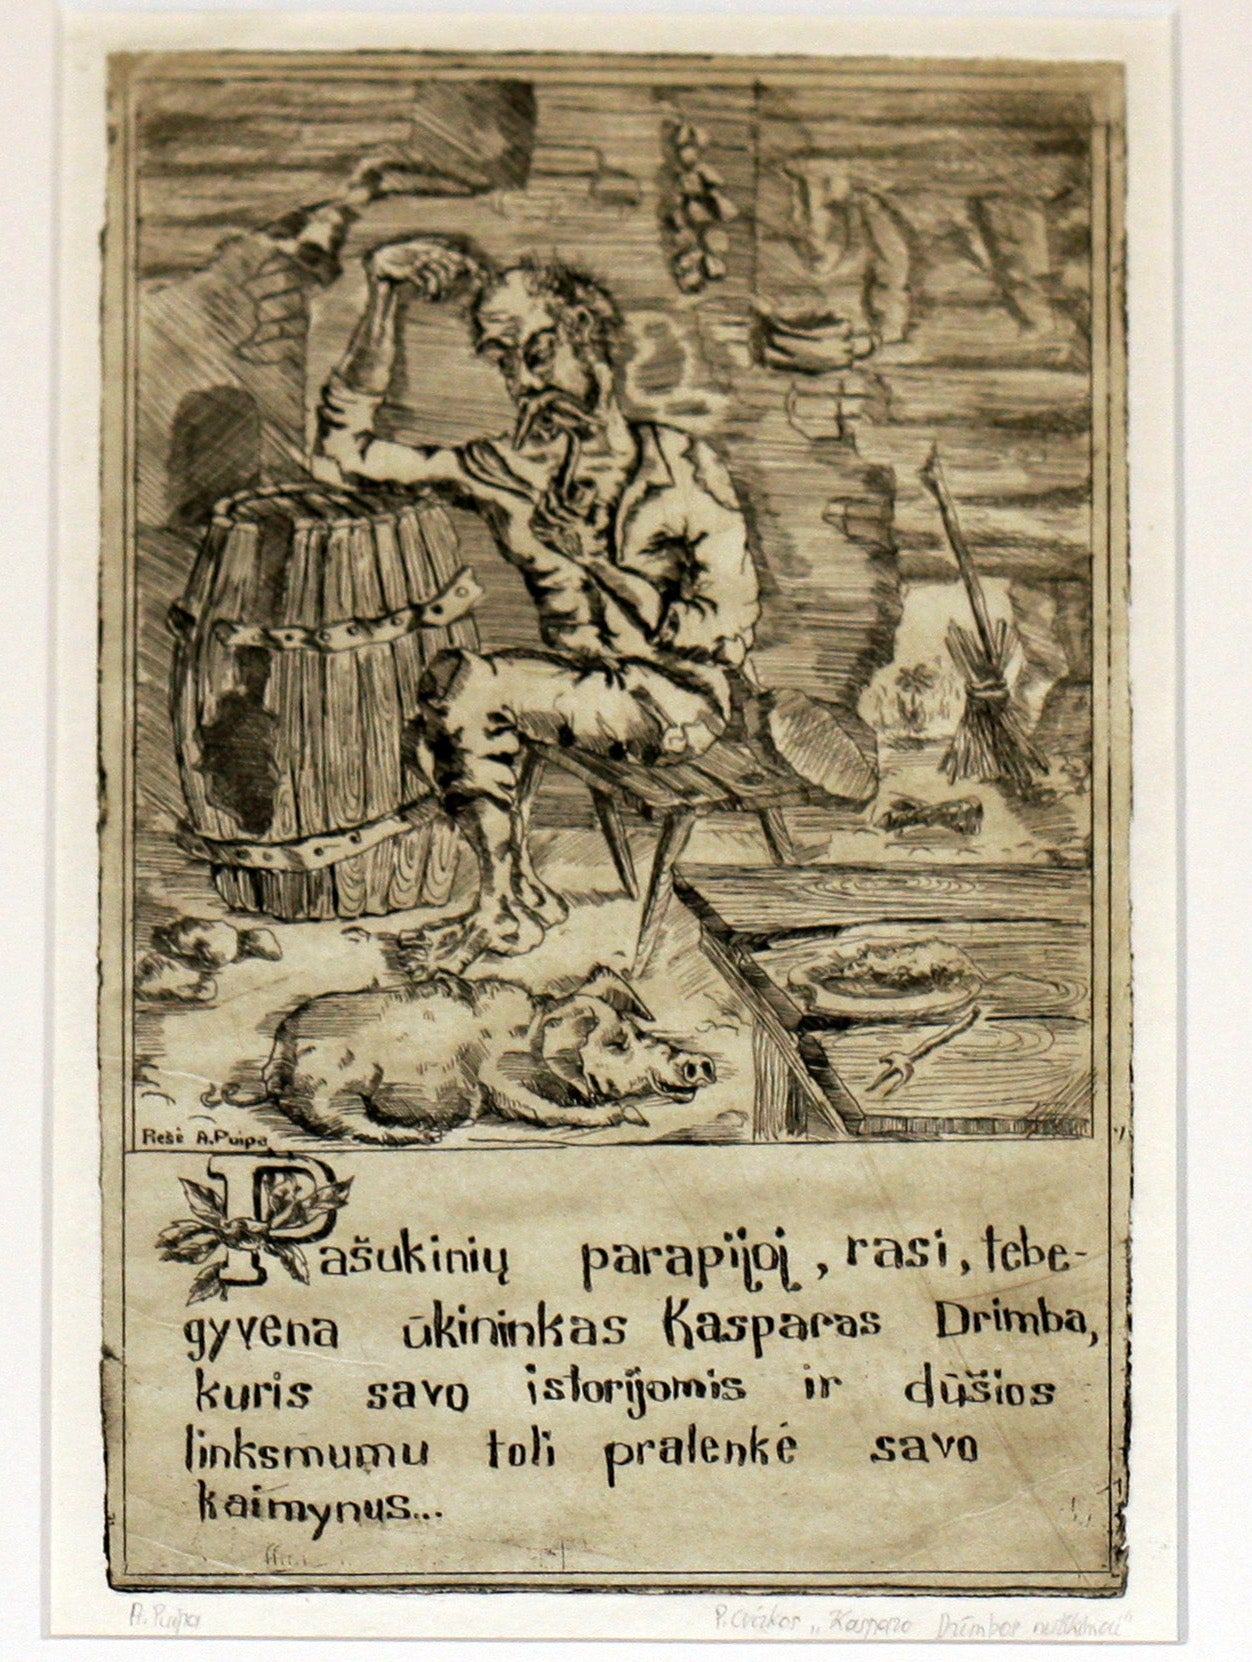 Rėžė A. Puipa
Pašukinių parapijoj, rasi, tebe-
gyvena ūkininkas Kasparas Drimba,
kuris savo istorijomis ir dūšios
linksmumu toli pralenkė savo
kaimynus...
A. Puipa
P. Cvirkos „Kasparo Drimbos nutikimai"